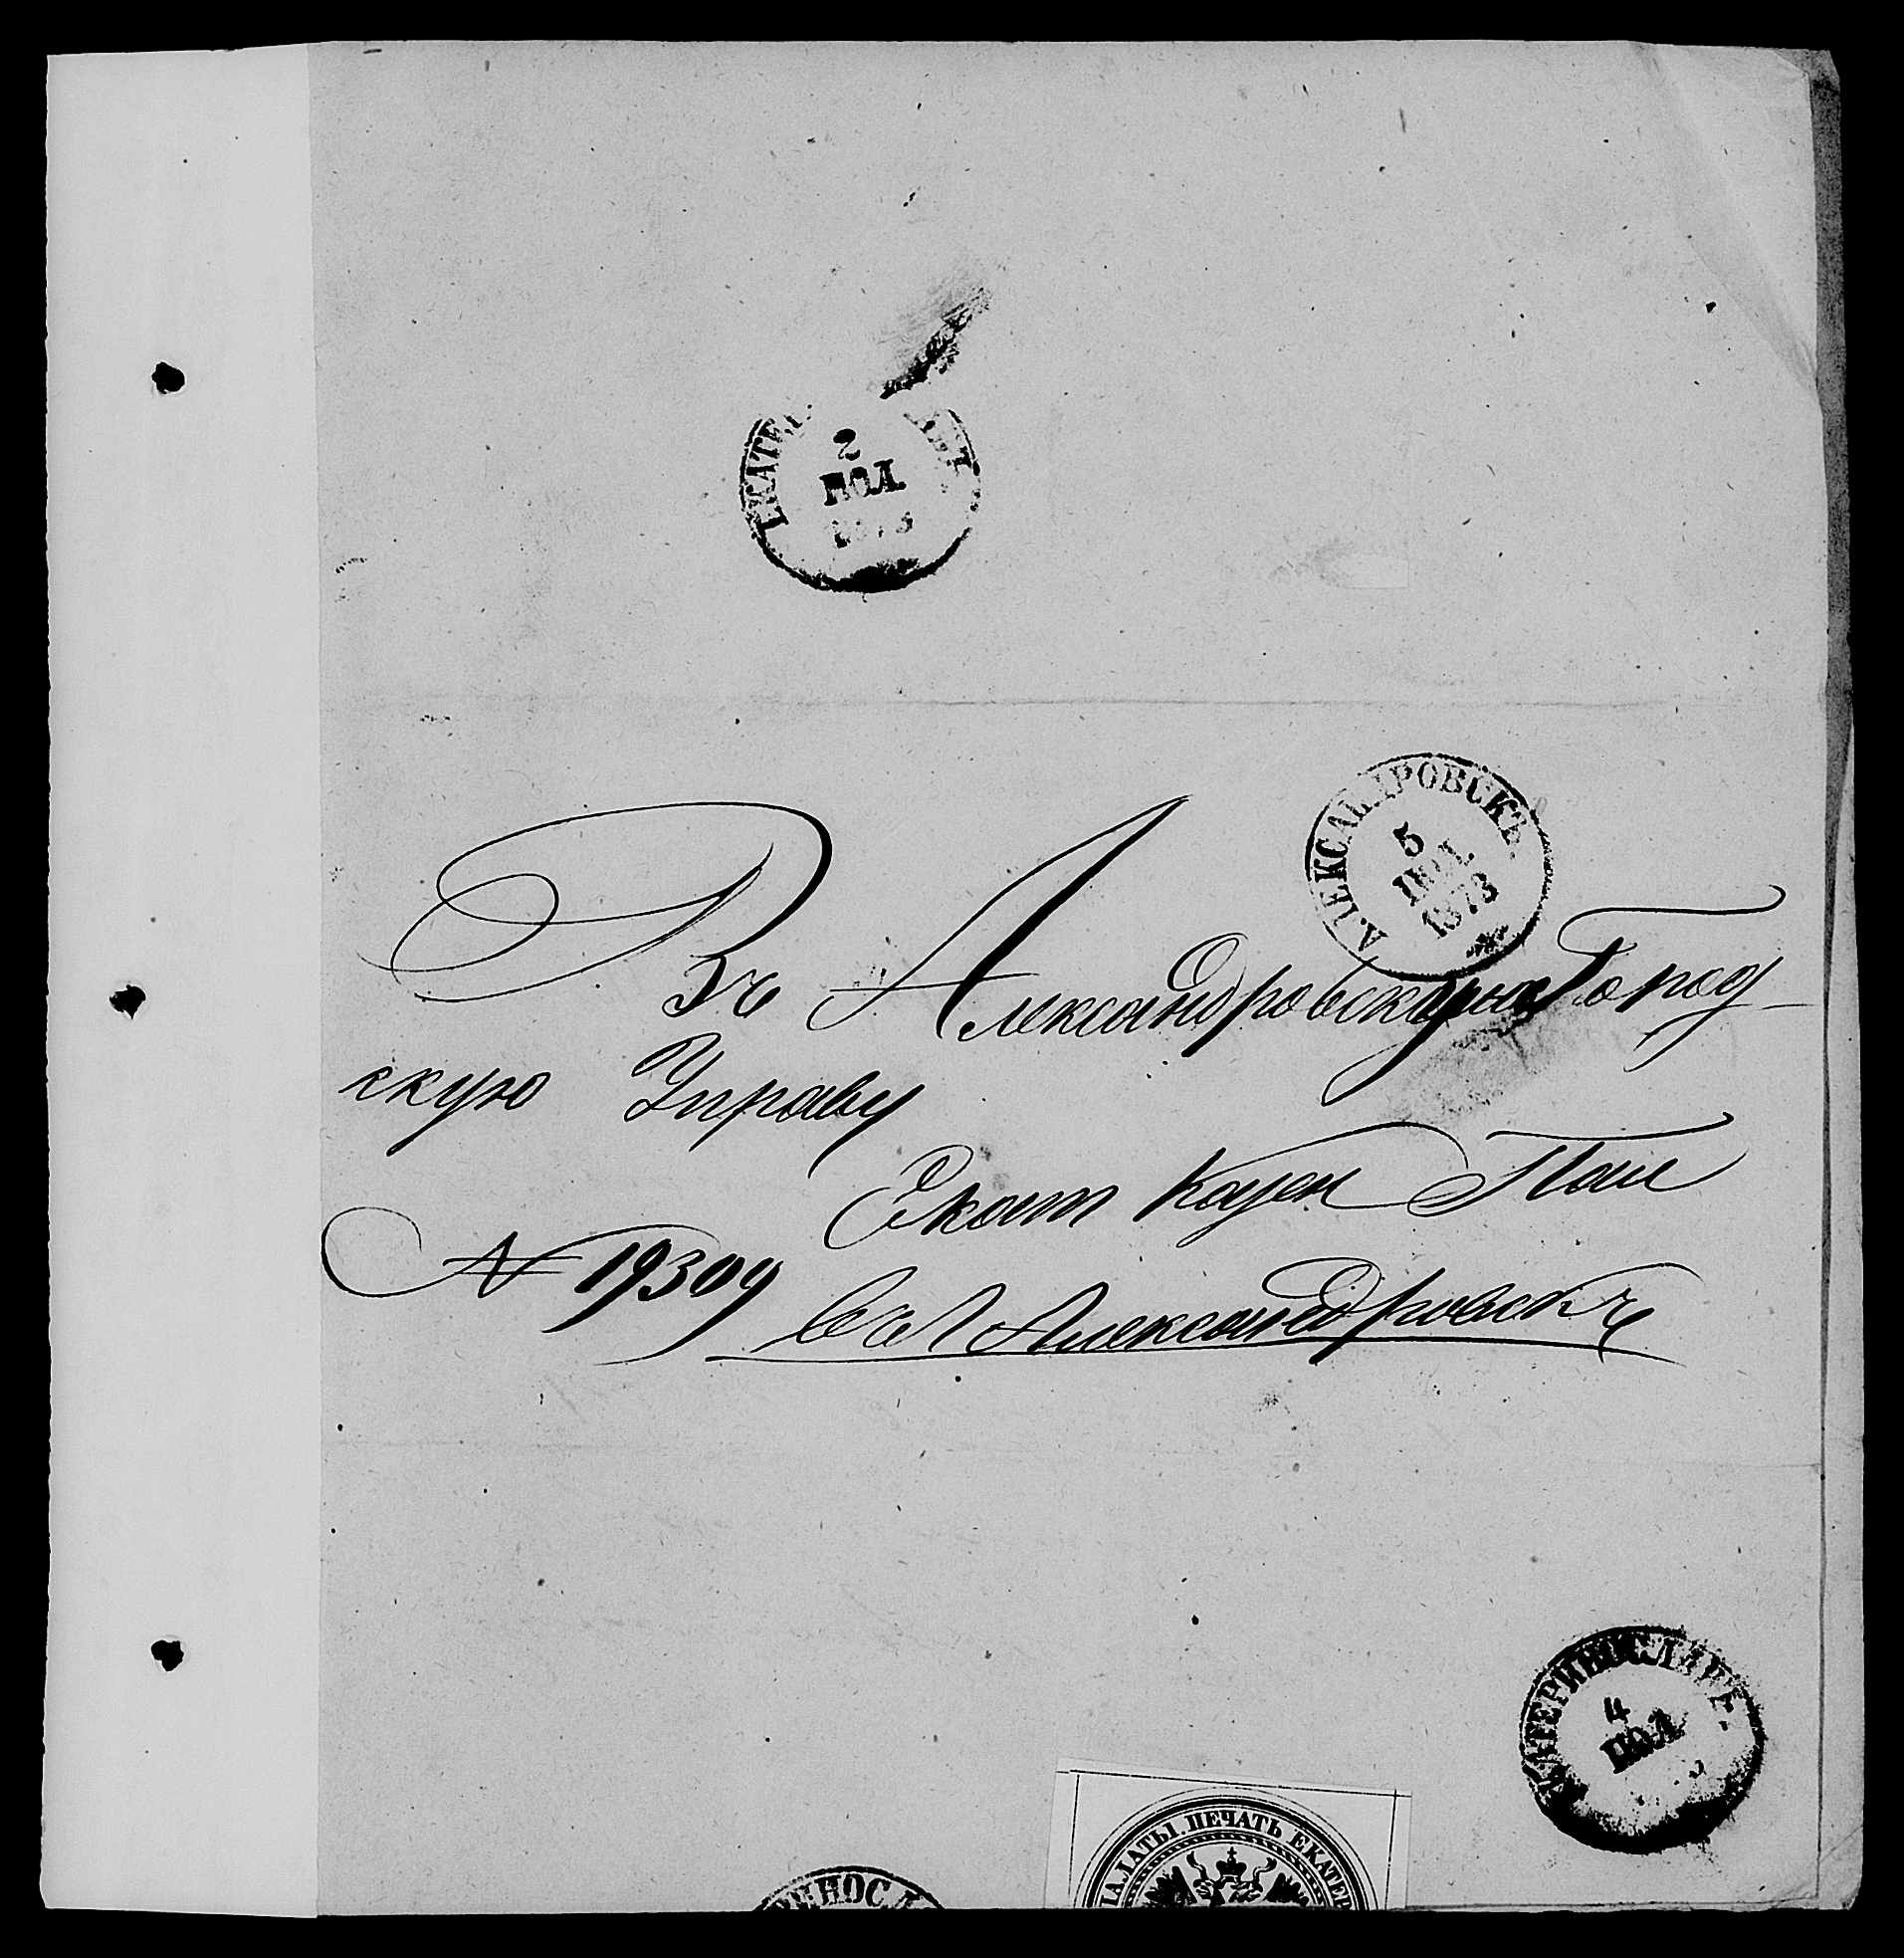 ЕКАТЕ
2
ПОЛ.
1873
АЛЕКСАНДРОВСКЪ.
5
ПОЛ.
1873
Въ Александровскую Город-
скую Управу
Екат Казен Пал
№ 19309
въ Александровскъ
ЕКАТЕРИНОСЛАВЪ.
4
ПОЛ
ПАЛАТЫ. ПЕЧАТЬ ЕКАТЕР
РИНОСЛ